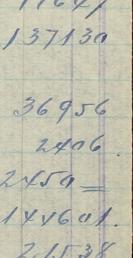 137130
36956
2406.
2450=
144601.
21538